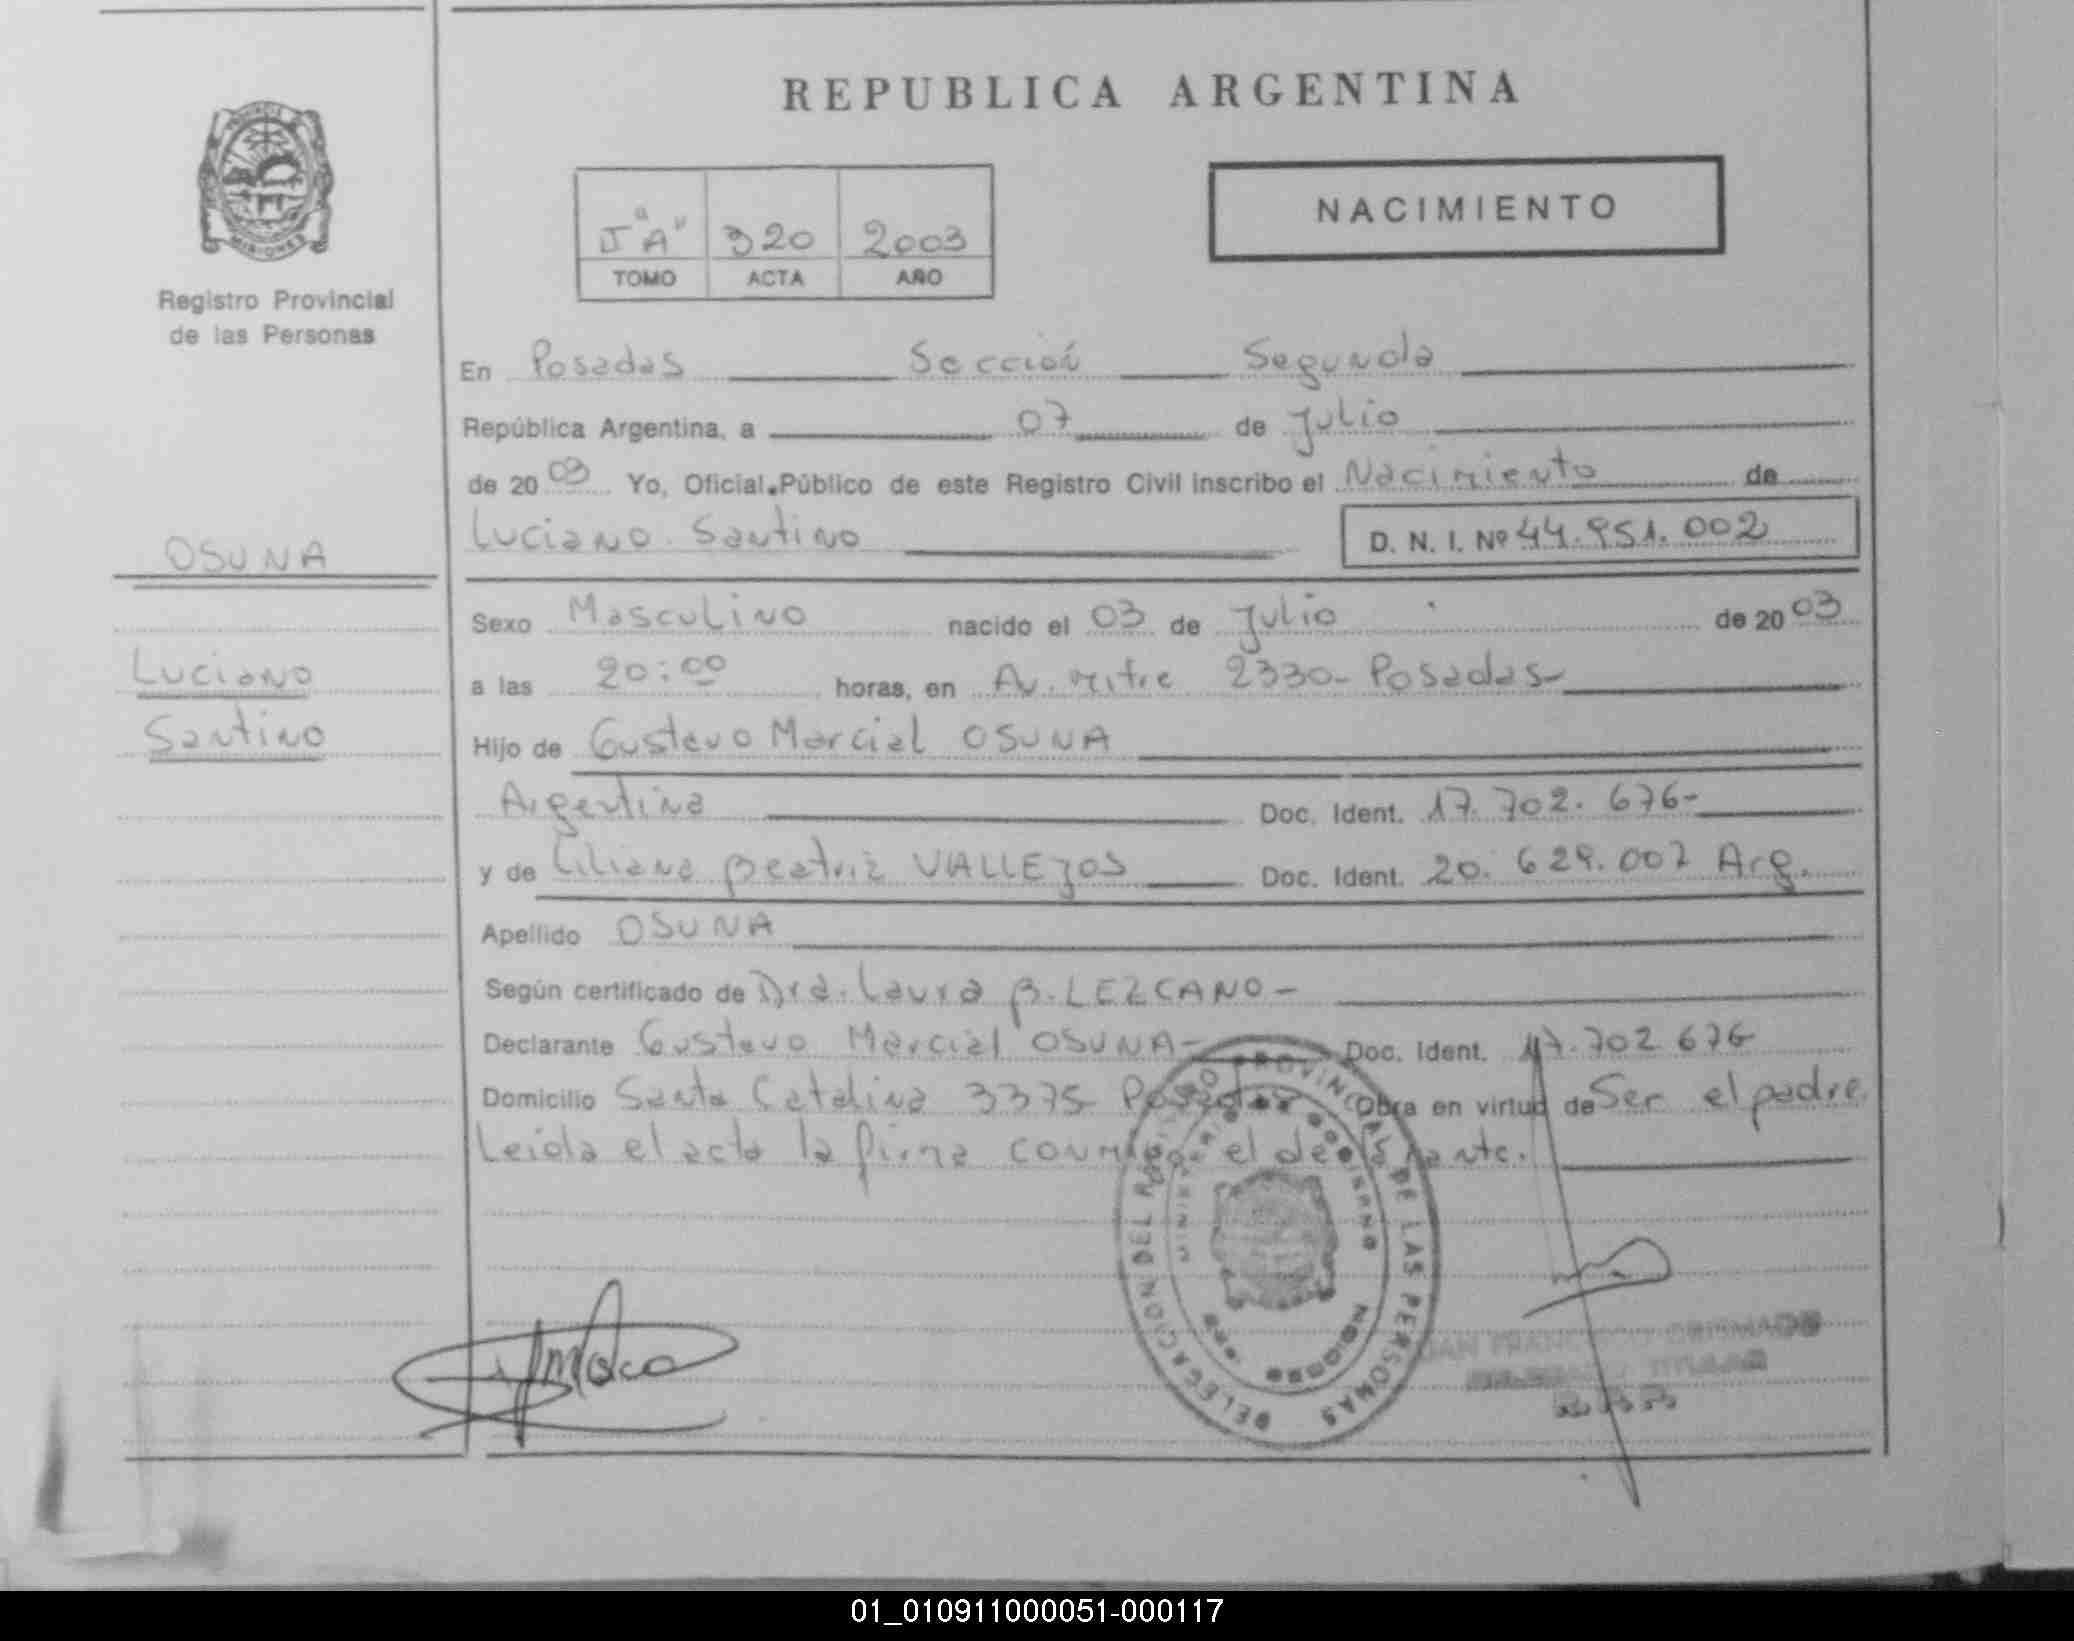 REPUBLICA ARGENTINA
NACIMIENTO
I "A" 320 2003
TOMO ACTA AÑO
PROVINCIA
MISIONES
Registro Provincial
de las Personas
En Posadas Sección Segunda
República Argentina, a 07 de Julio
de 2003 Yo, Oficial Público de este Registro Civil inscribo el Nacimiento de
Luciano Santino D. N. I. Nº 44.951.002
OSUNA
Luciano
Santino
Sexo Masculino nacido el 03 de Julio de 2003
a las 20:00 horas, en Av. Mitre 2330- Posadas-
Hijo de Gustavo Marcial OSUNA
Argentina Doc. Ident. 17.702.676-
y de Liliana Beatriz VALLEJOS Doc. Ident. 20.629.007 Arg.
Apellido OSUNA
Según certificado de Dra. Laura B. LEZCANO-
Declarante Gustavo Marcial OSUNA- Doc. Ident. 17.702.676
Domicilio Santa Catalina 3375 Posadas Obra en virtud de Ser el padre
Leida el acta la firma conmigo el declarante.
DELEGACION DEL REGISTRO PROVINCIAL DE LAS PERSONAS
MINISTERIO DE GOBIERNO
MISIONES
TITULAR
01_010911000051-000117